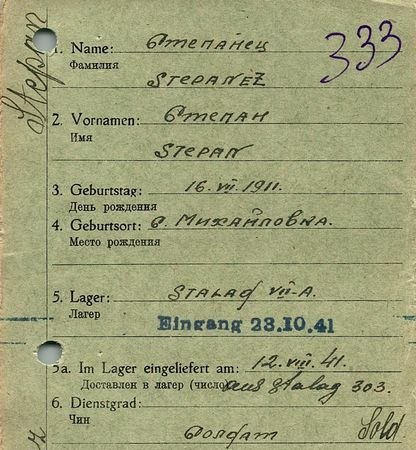 Stepan
333
1. Name: Степанец
Фамилия
STEPANEZ
2. Vornamen: Степан
Имя
STEPAN
3. Geburtstag: 16. VII. 1911.
День рождения
4. Geburtsort: с. Михайловка.
Место рождения
5. Lager: STALAG VII-A.
Лагер
Eingang 23.10.41
5a. Im Lager eingeliefert am: 12. VIII. 41.
Доставлен в лагер (число) aus Stalag 303.
6. Dienstgrad:
Чин
Солдат Sold.